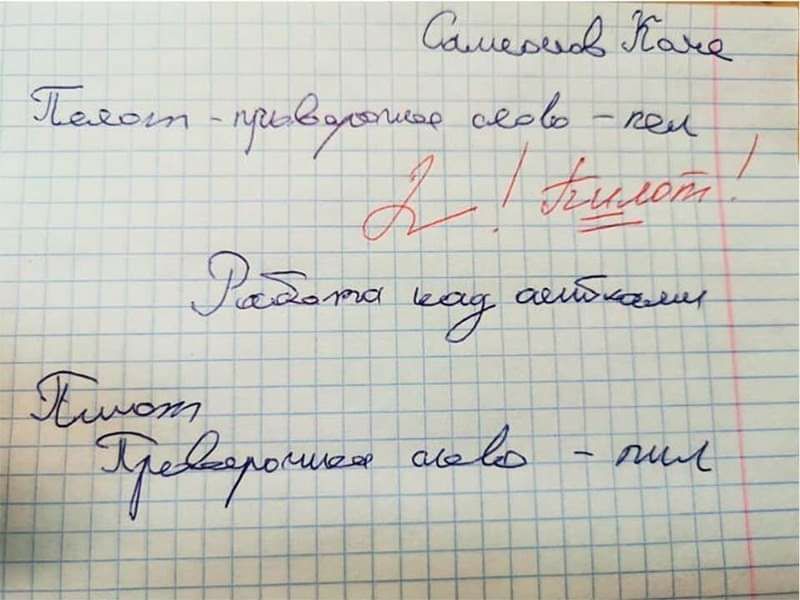 Самсонов Коле
Пелот - прыверочное слово - пел
2! Пилот!
Работа над ашибками
Пилот
Преверочное слово - пил